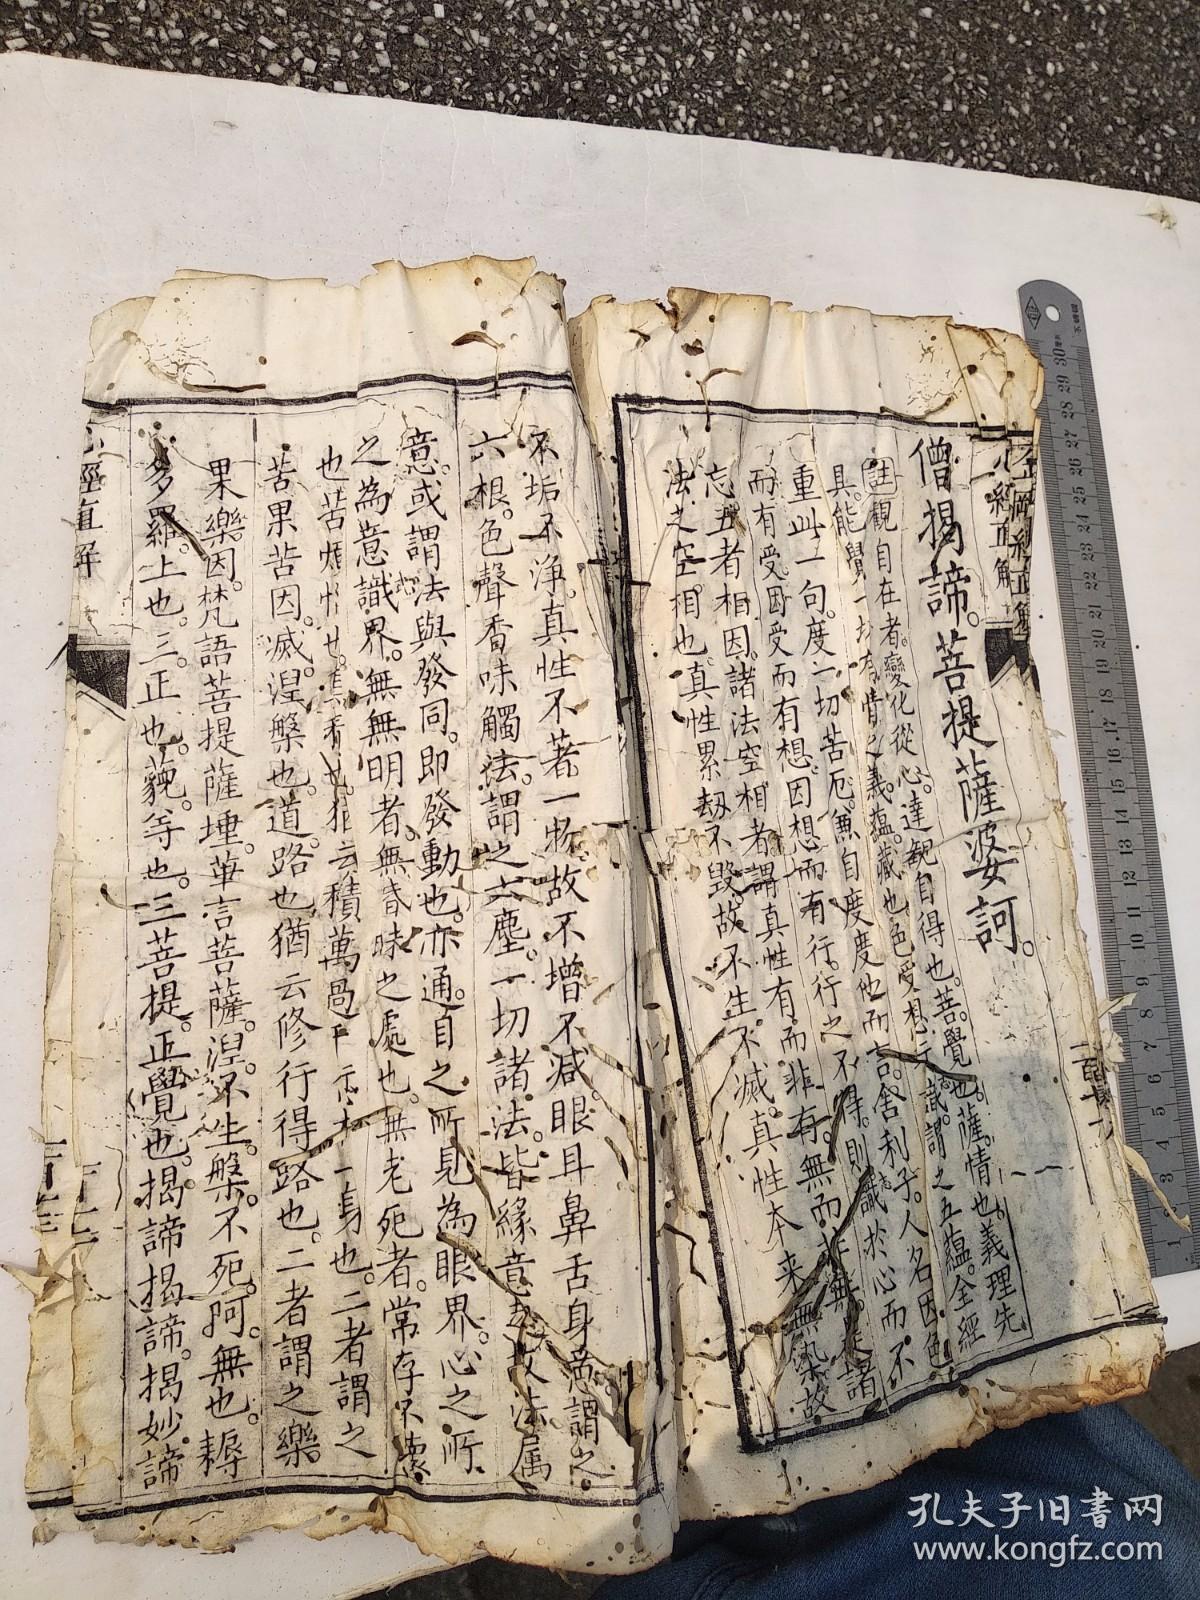 僧揭諦。菩提薩婆訶。
註觀自在者。變化從心。達觀自得也。菩。覺也。薩。情也。義理先
具。能覺一切有情之義。蘊。藏也。色受想行識。謂之五蘊。全經
重此一句。度一切苦厄。無自度度他而言。舍利子。人名。因色
而有受。因受而有想。因想而有行。行之不得。則識於心而不
忘。五者相因。諸法空相者。謂真性有而非有。無而非無。是諸
法之空。相也。真性累劫不毀。故不生不滅。真性本來無染。故
不垢不淨。真性不著一物。故不增不減。眼耳鼻舌身意。謂之
六根。色聲香味觸法。謂之六塵。一切諸法。皆緣意起。故法属
意。或謂法與發同。即發動也。亦通。目之所見為眼界。心之所
之為意識界。無無明者。無昏昧之處也。無老死者。常存不壞
也。苦
積萬過
一身也。二者謂之
苦果苦因。滅。涅槃也。道。路也。猶云修行得路也。二者謂之樂
果樂因。梵語菩提薩埵。華言菩薩。涅。不生。槃。不死。阿。無也。耨
多羅。上也。三。正也。藐。等也。三菩提。正覺也。揭諦揭諦。揭妙諦
心經直解
孔夫子旧書网
www.kongfz.com
不锈钢
30 29 28 27 26 25 24 23 22 21 20 19 18 17 16 15 14 13 12 11 10 9 8 7 6 5 4 3 2 1